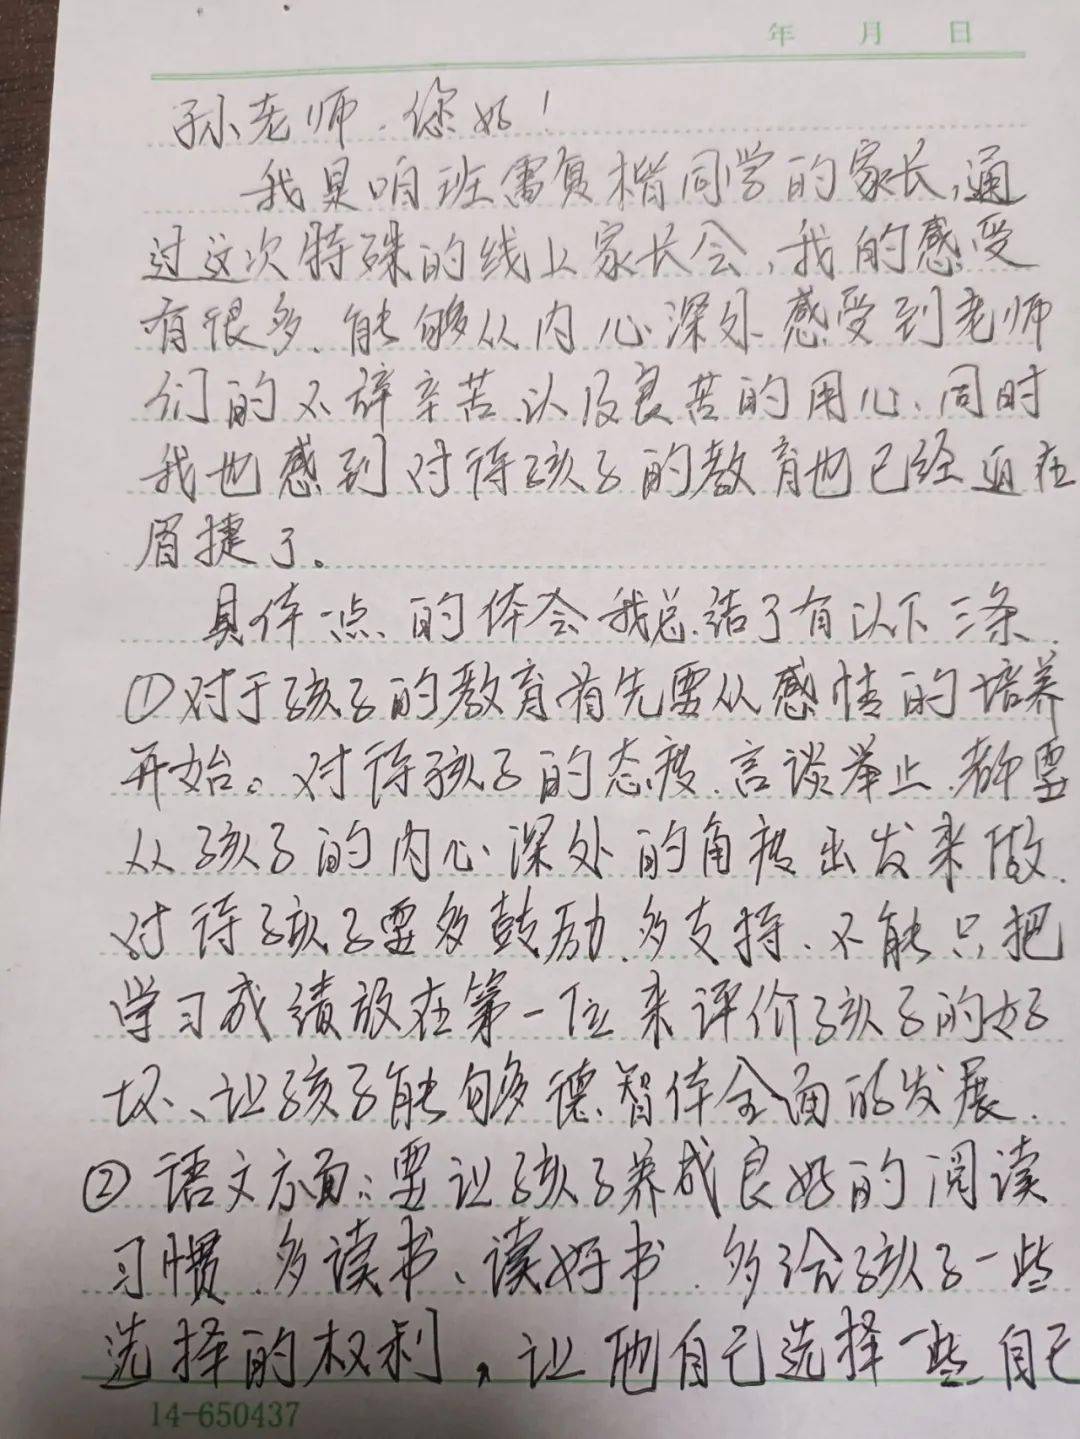 年 月 日
孙老师.您好！
我是咱班雷复楷同学的家长,通
过这次特殊的线上家长会,我的感受
有很多、能够从内心深处感受到老师
们的不辞辛苦以及良苦的用心、同时
我也感到对待孩子的教育也已经迫在
眉捷了。
具体一点的体会我总结了有以下三条.
①对于孩子的教育首先要从感情的培养
开始。对待孩子的态度.言谈举止.都要
从孩子的内心深处的角度出发来做.
对待孩子要多鼓励.多支持、不能只把
学习成绩放在第一位来评价孩子的好
坏、让孩子能够德智体全面的发展.
②语文方面:要让孩子养成良好的阅读
习惯.多读书、读好书.多给孩子一些
选择的权利、让他自己选择一些自己
14-650437